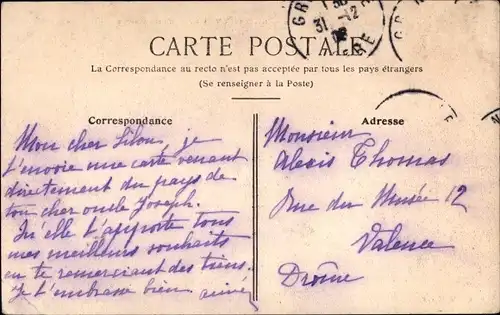 CARTE POSTALE
La Correspondance au recto n'est pas acceptée par tous les pays étrangers
(Se renseigner à la Poste)
Correspondance
Mon cher Lilou, je
t'envoie une carte venant
directement du pays de
ton cher oncle Joseph.
Qu'elle t'apporte tous
mes meilleurs souhaits
en te remerciant des tiens.
Je t'embrasse bien
Adresse
Monsieur
Alexis Thomas
Rue du Musée 12
Valence
Drôme
GR
31 -12
RE
GR